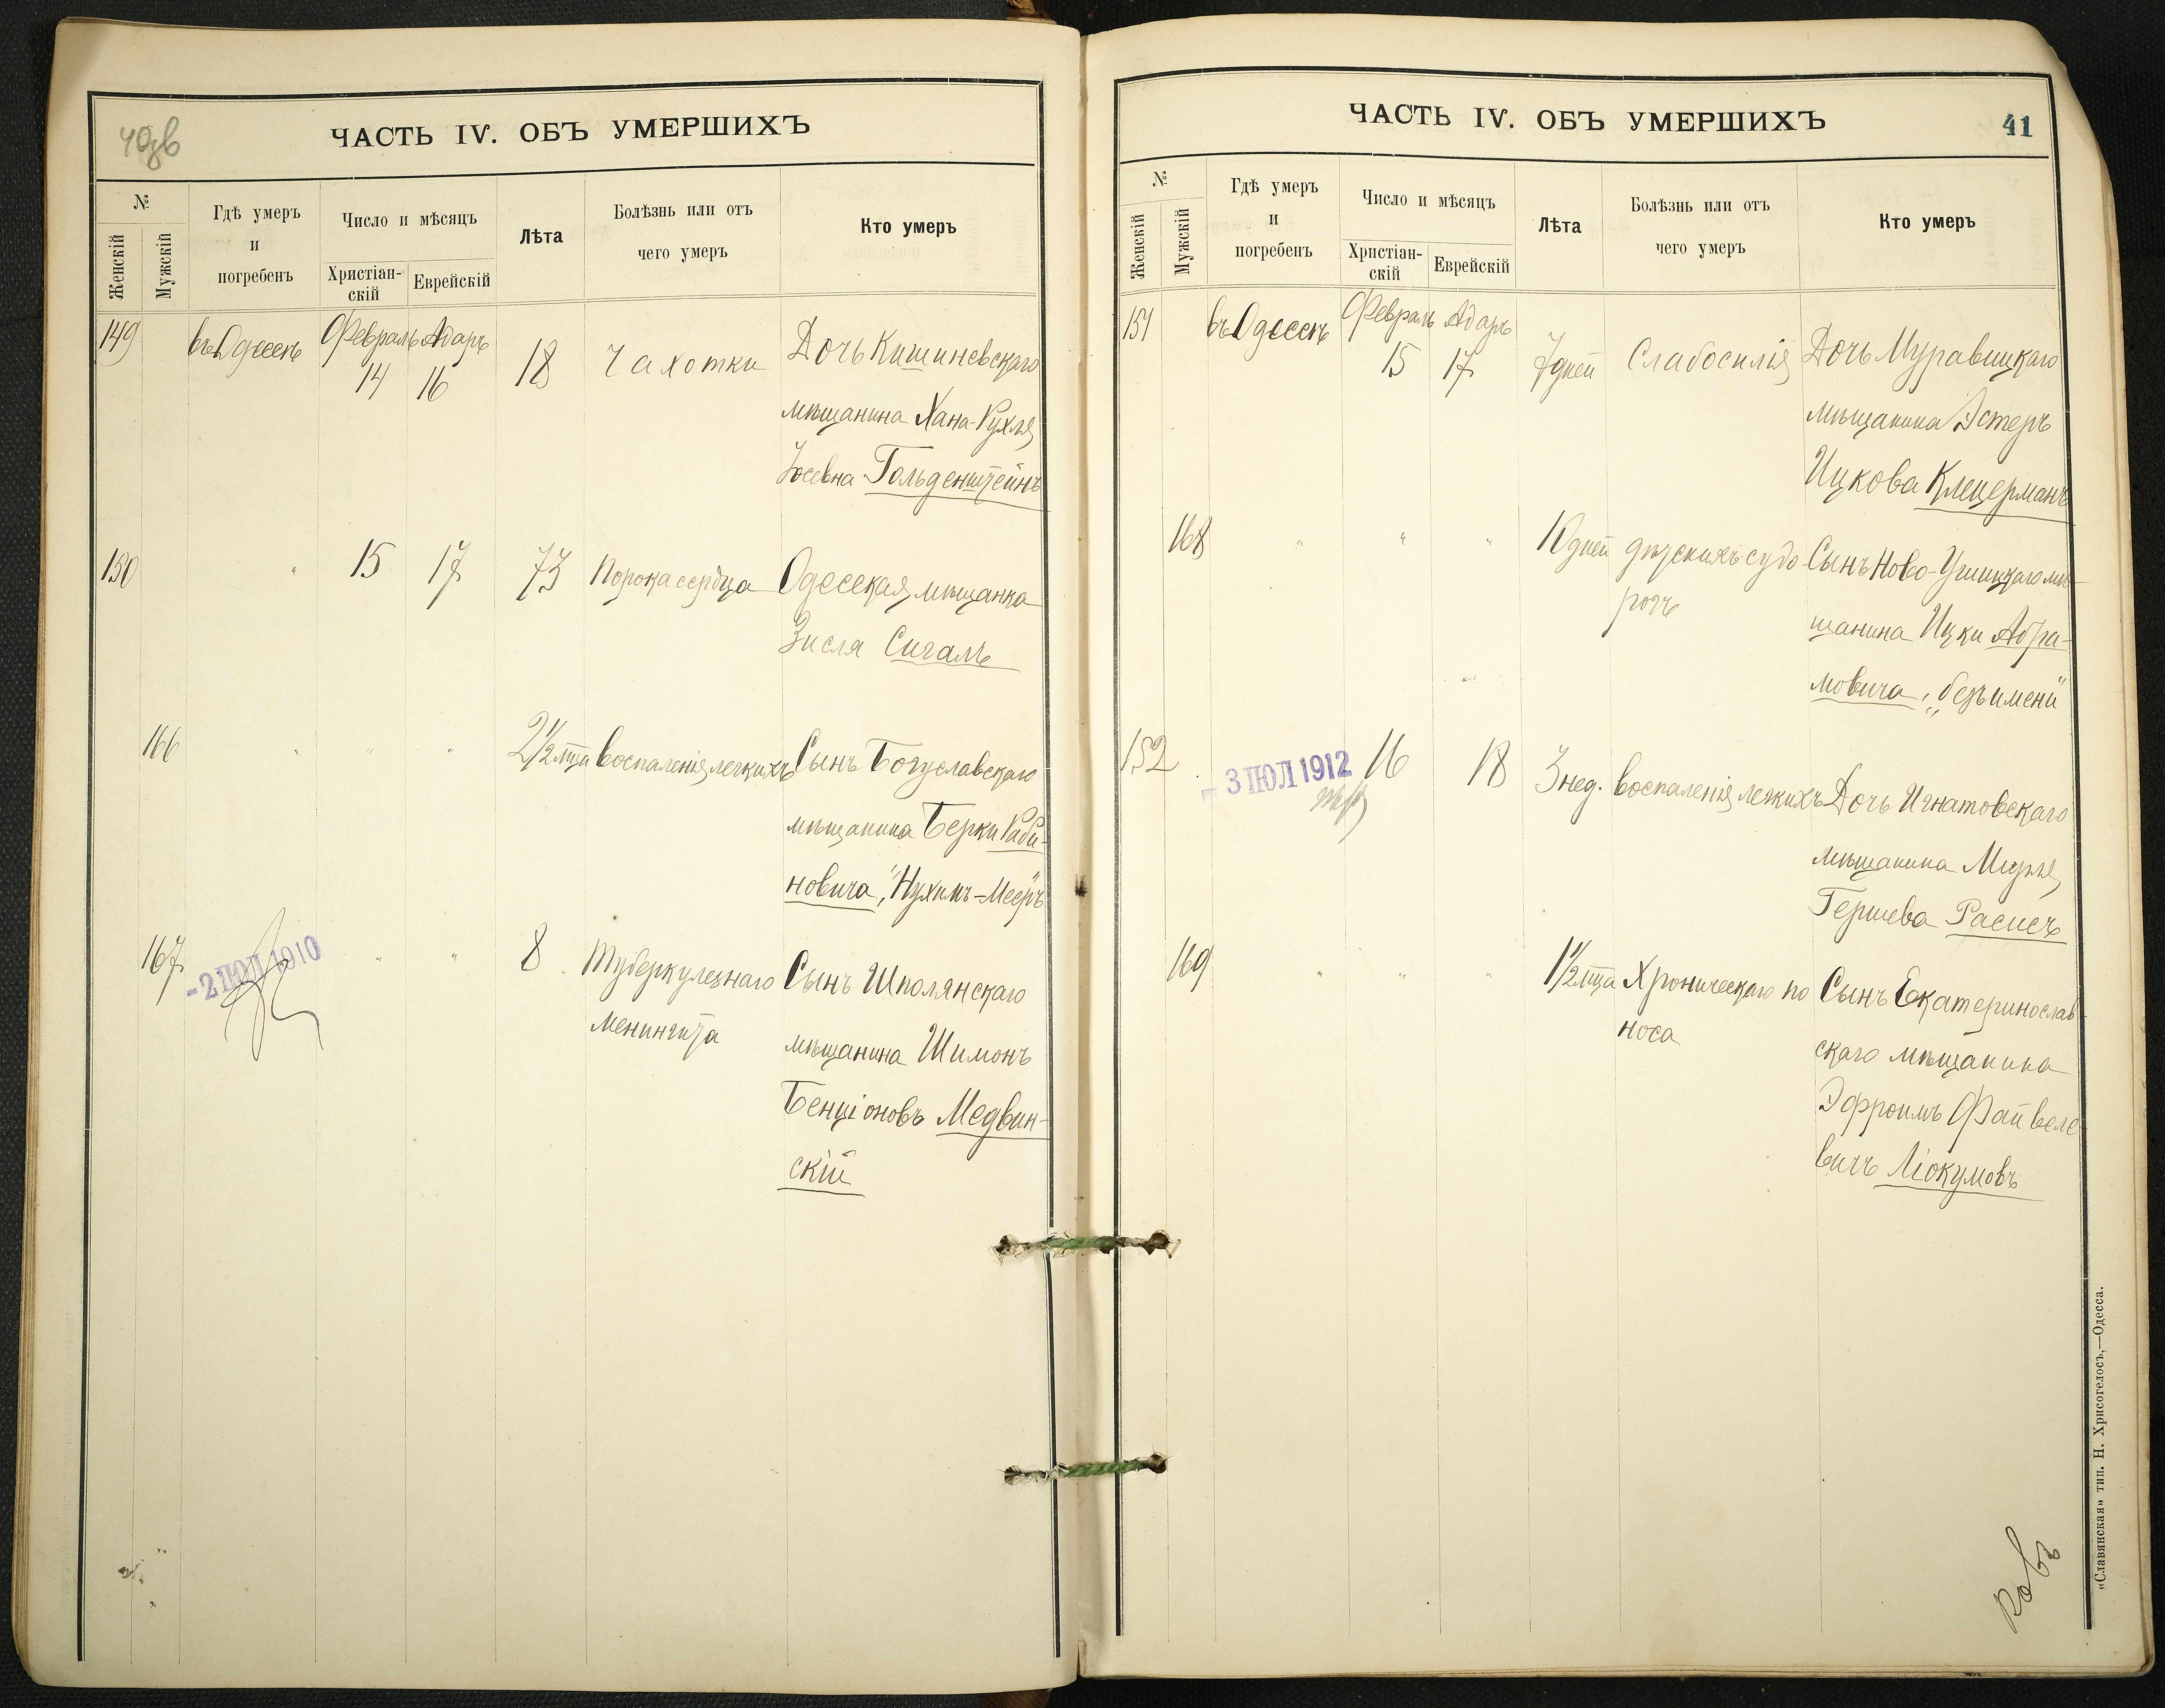 ЧАСТЬ IV. ОБЪ УМЕРШИХЪ
№
Женскій
Мужскій
Гдѣ умеръ
и
погребенъ
Число и мѣсяцъ
Христіан-
скій
Еврейскій
Лѣта
Болѣзнь или отъ
чего умеръ
Кто умеръ
149 въ Одессѣ Февраль Адаръ
14 16 18 Чахотки Дочь Кишиневскаго
мѣщанина Хана-Рухля
Іосевна Гольденштейнъ
150 " 15 17 73 Порока сердца Одесская мѣщанка
Зисля Сигалъ
166 " " " 2 1/2 мца Воспаленія легкихъ Сынъ Богуславскаго
мѣщанина Берки Раби-
новича, "Нухимъ-Мееръ"
167 - 2 ІЮЛ 1910 " " 8 Туберкулезнаго Сынъ Шполянскаго
менингита
мѣщанина Шимонъ
Бенціоновъ Медвин-
скій
ЧАСТЬ IV. ОБЪ УМЕРШИХЪ 41
№
Женскій
Мужскій
Гдѣ умеръ
и
погребенъ
Число и мѣсяцъ
Христіан-
скій
Еврейскій
Лѣта
Болѣзнь или отъ
чего умеръ
Кто умеръ
151 въ Одессѣ Февраль Адаръ
15 17 7 дней Слабосилія Дочь Муравицкаго
мѣщанина Эстеръ
Ицкова Клецерманъ
168 " " " 10 дней дѣтскихъ судо- Сынъ Ново-Ушицкаго мѣ-
рогъ
щанина Ицки Абра-
мовича, "безъ имени"
152 - 3 ІЮЛ 1912 16 18 3 нед. воспаленія легкихъ Дочь Игнатовскаго
мѣщанина
Гершева Расисъ
169 " " " 1 1/2 мца Хроническаго по Сынъ Екатеринослав-
носа
скаго мѣщанина
Эфроимъ Файвеле
вичъ Ліокумовъ
«Славянская» тип. Н. Хрисогелосъ,—Одесса.